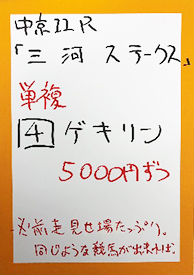 中京11R
「三河ステークス」
単複
4 ゲキリン
5000円ずつ
※前走見せ場たっぷり。
同じような競馬が出来れば、